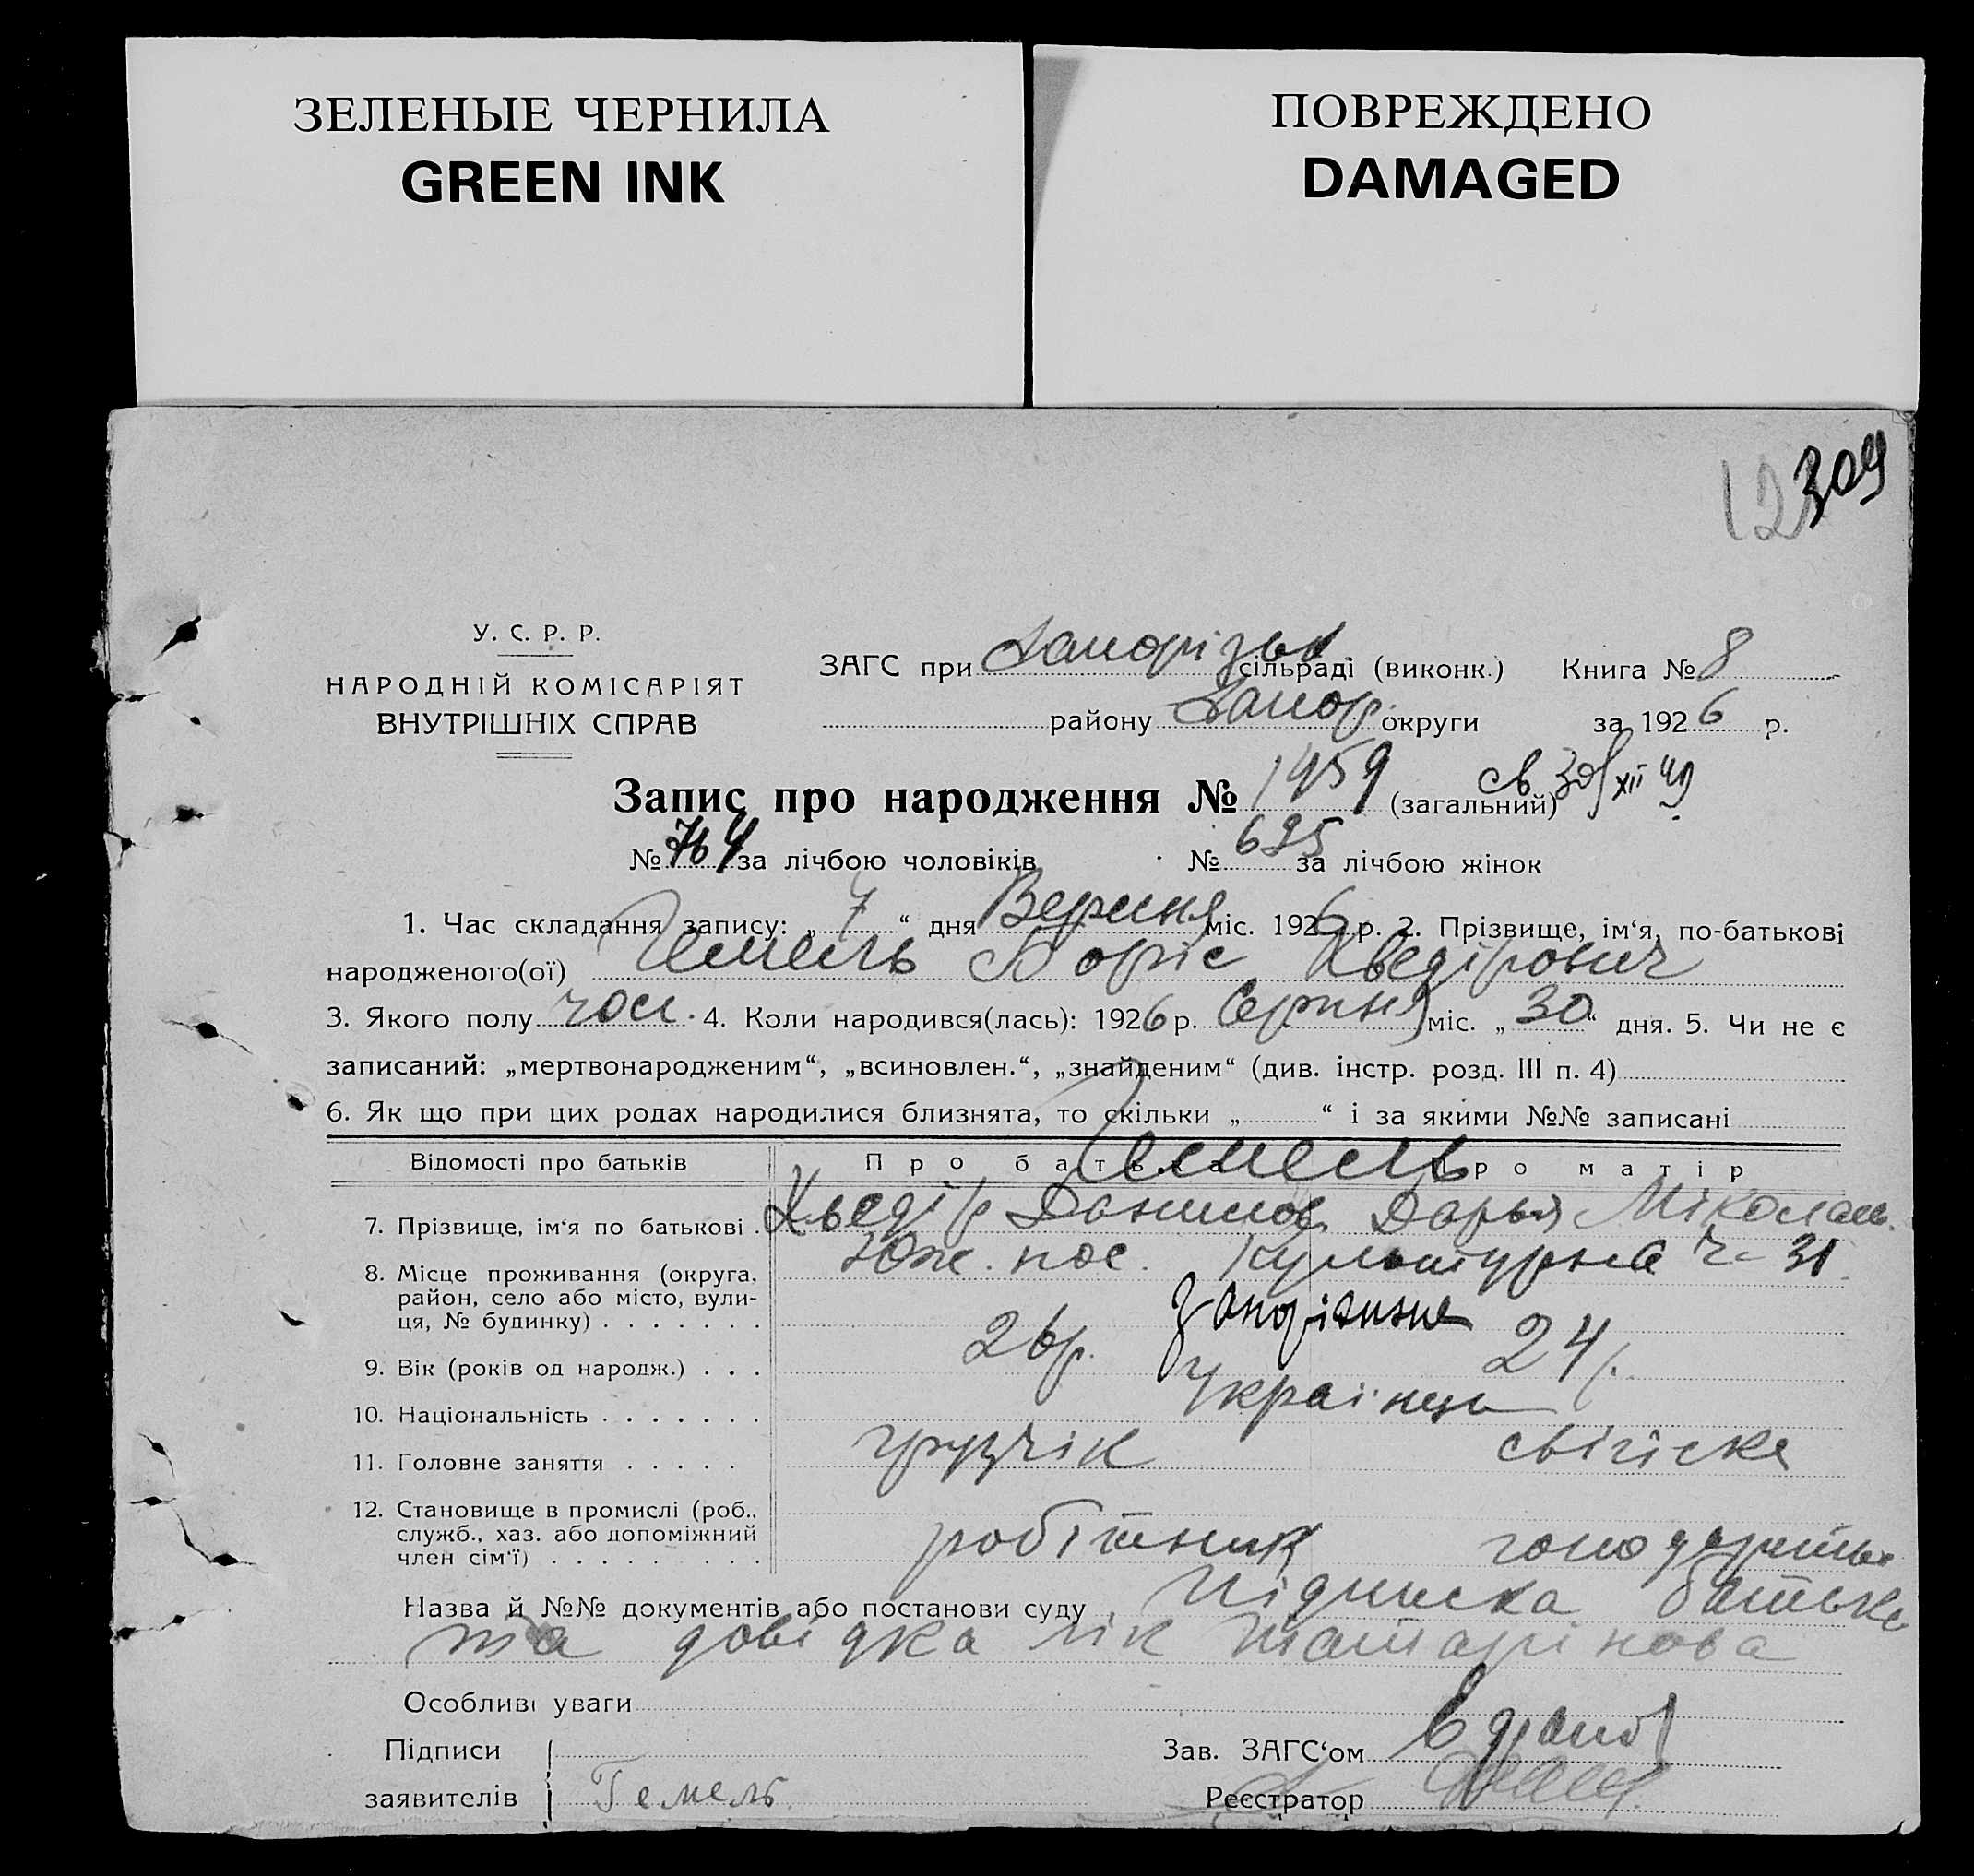 ЗЕЛЕНЫЕ ЧЕРНИЛА
GREEN INK
ПОВРЕЖДЕНО
DAMAGED
12 309
У. С. Р. Р.
НАРОДНІЙ КОМІСАРІЯТ
ВНУТРІШНІХ СПРАВ
ЗАГС при Запорізьк сільраді (виконк.) Книга № 8
району Запор. округи за 1926 р.
Запис про народження № 1459 (загальний) св 30/XII 49
№ 764 за лічбою чоловіків № 695 за лічбою жінок
1. Час складання запису: „ 7 “ дня Вересня міс. 1926 р. 2. Прізвище, ім‘я, по-батькові
народженого(ої) Гемель Боріс Хведірович
3. Якого полу чол. 4. Коли народився(лась): 1926 р. Серпня міс. „ 30 “ дня. 5. Чи не є
записаний: „мертвонародженим“, „всиновлен.“, „знайденим“ (див. інстр. розд. III п. 4)
6. Як що при цих родах народилися близнята, то скільки „ “ і за якими №№ записані
Відомості про батьків Про батька Про матір
Гемель
7. Прізвище, ім‘я по батькові Хведір Данилов Дарья Міколаєв.
8. Місце проживання (округа, Юж. пос. Культурна ч. 31
район, село або місто, вули-
ця, № будинку) Запоріжжя
9. Вік (років од народж.) 26 р. 24 р.
10. Національність Українці
11. Головне заняття грузчік
12. Становище в промислі (роб.,
служб., хаз. або допоміжний
член сім‘ї) робітник
Назва й №№ документів або постанови суду Підписка батька
та довідка лік Татарінова
Особливі уваги
Підписи Зав. ЗАГС‘ом
заявителів Гемель Реєстратор